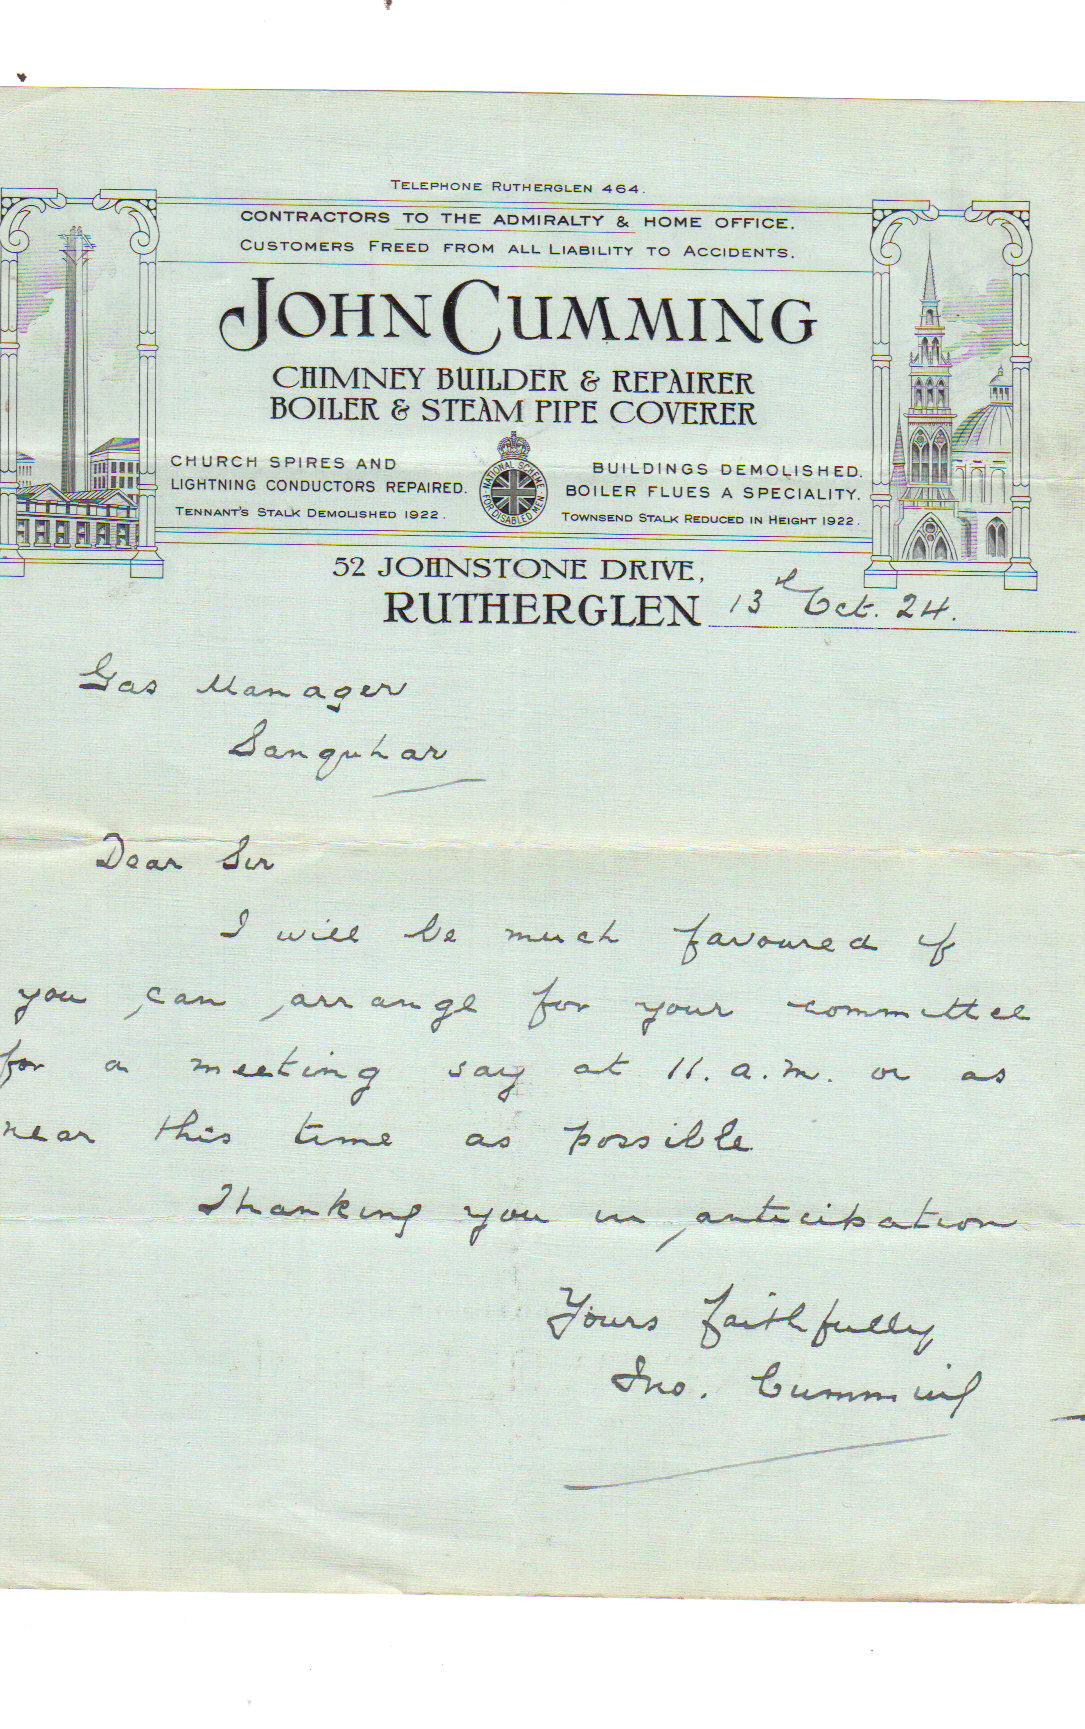 TELEPHONE RUTHERGLEN 464.
CONTRACTORS TO THE ADMIRALTY & HOME OFFICE.
CUSTOMERS FREED FROM ALL LIABILITY TO ACCIDENTS.
JOHN CUMMING
CHIMNEY BUILDER & REPAIRER
BOILER & STEAM PIPE COVERER
CHURCH SPIRES AND
LIGHTNING CONDUCTORS REPAIRED.
TENNANT'S STALK DEMOLISHED 1922.
NATIONAL SCHEME
FOR DISABLED MEN
BUILDINGS DEMOLISHED.
BOILER FLUES A SPECIALITY.
TOWNSEND STALK REDUCED IN HEIGHT 1922.
52 JOHNSTONE DRIVE,
RUTHERGLEN 13th Oct. 24.
Gas Manager
Sanquhar
Dear Sir
I will be much favoured if
you can arrange for your committee
for a meeting say at 11. a.m. or as
near this time as possible
Thanking you in anticipation
Yours faithfully
Jno. Cumming